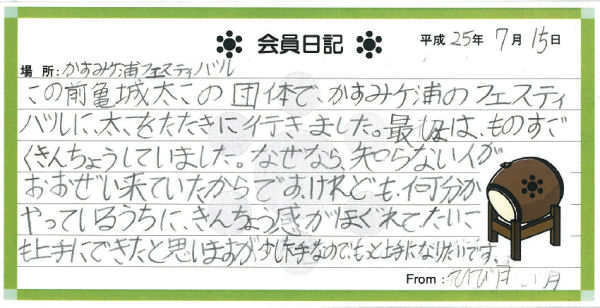 会員日記
平成 25年 7月 15日
場所:かすみケ浦フェスティバル
この前亀城太この団体で、かすみケ浦のフェスティ
バルに、太こをたたきに行きました。最しょは、ものすご
くきんちょうしていました。なぜなら、知らない人が
おおぜい来ていたからです。けれども、何分か
やっているうちに、きんちょう感がほぐれてたいこ
も上手にできたと思いますが、少し下手なので、もっと上手になりたいです。
From: